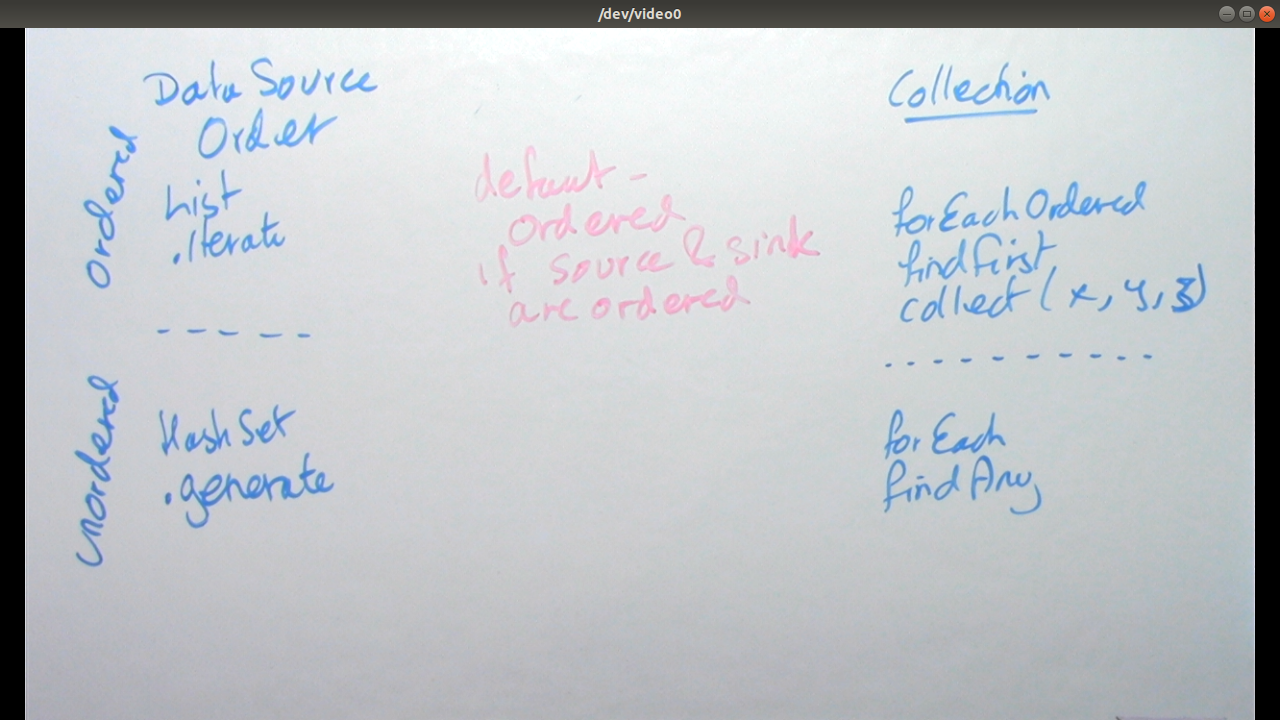 /dev/video0
Data Source
Order
Ordered
List
.iterate
- - - - -
Unordered
HashSet
.generate
default -
ordered
if source & sink
are ordered
Collection
forEachOrdered
findFirst
collect(x, y, z)
- - - - - - - - - -
forEach
findAny